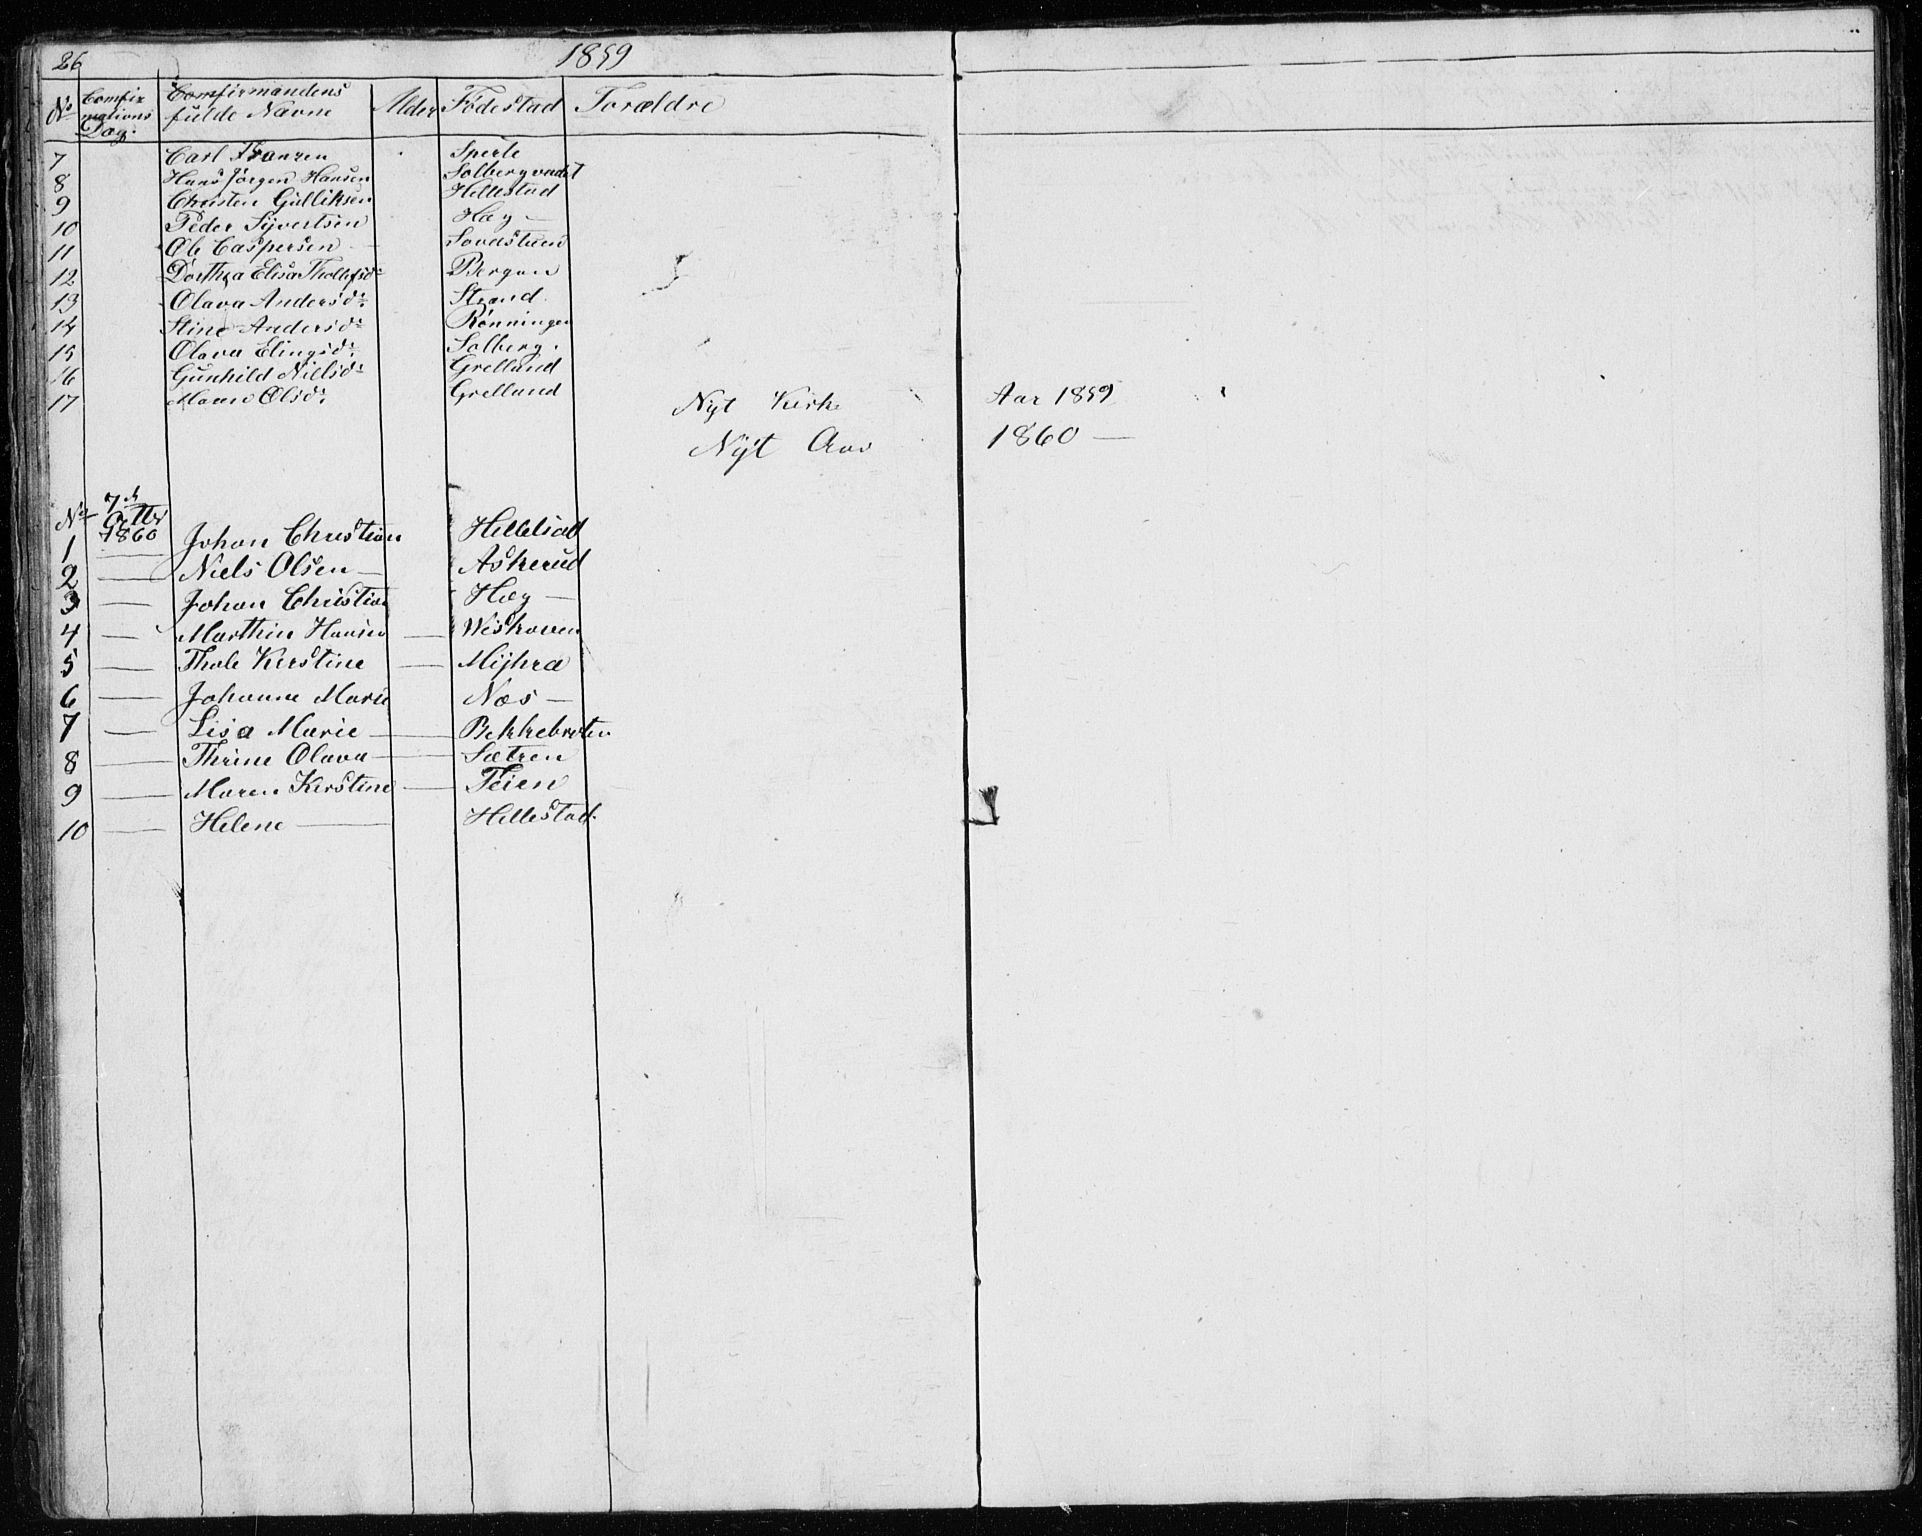 26 1859
No Comfir mations Dag. Comfirmandens fulde Navne Alder Födestad Forældre
7 Carl Franzen Sperle
8 Hans Jörgen Hansen Solbergvadet
9 Christen Gulliksen Hillestad
10 Peder Syvertsen Hæg —
11 Ole Caspersen —
12 Dorthea Elisa Thollefsdr Bergan
13 Olava Andersdr Strand.
14 Stine Andersdr Rönningen
15 Olava Elingsdr Solberg.
16 Gunhild Nillsdr Grelland
17 Maren Olsdr Grelland
Nyt Kirke Aar 1859
Nyt Aar 1860 —
No 7de 1860
1 — Johan Christian Hillestad
2 — Niels Olsen — Askerud
3 — Johan Christian Hæg —
4 — Marthin Hansen — Weskoven
5 — Thole Kirstine — Myhra
6 — Johanne Marie Næs —
7 — Lisa Marie — Bekkebroten
8 — Thrine Olava — Sætren
9 — Maren Kirstine — Teien
10 — Helene — Hillestad.